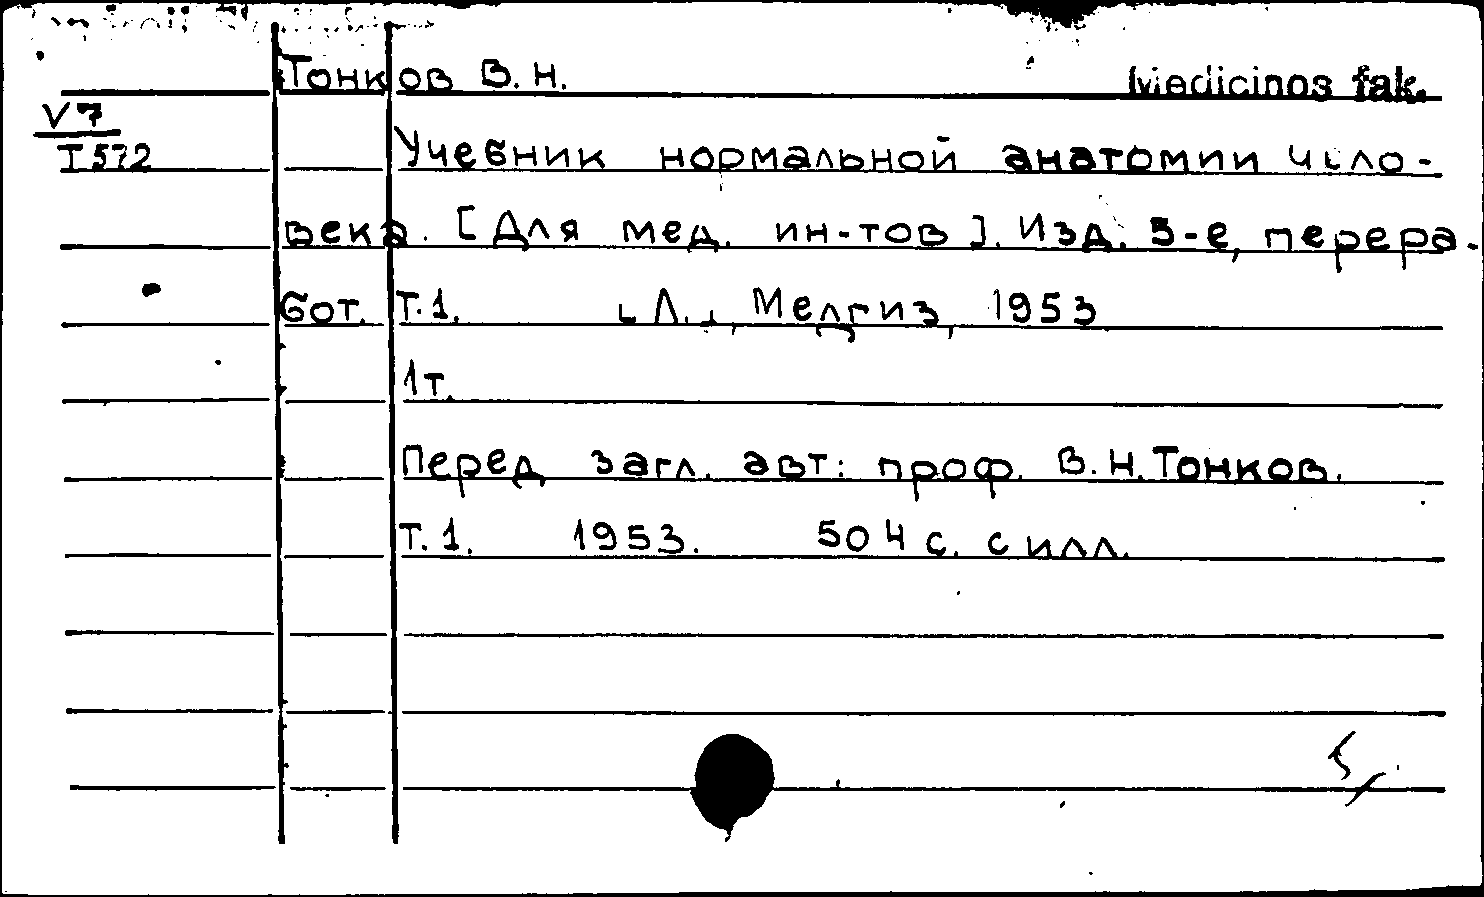 Тонков В. Н. Medicinos fak.
V7
T572
Учебник нормальной анатомии чело-
века. [Для мед. ин-тов]. Изд. 5-е, перера-
бот. Т. 1. [Л.], Медгиз, 1953
1 т.
Перед загл. авт: проф. В. Н. Тонков.
Т. 1. 1953. 504 с. с илл.